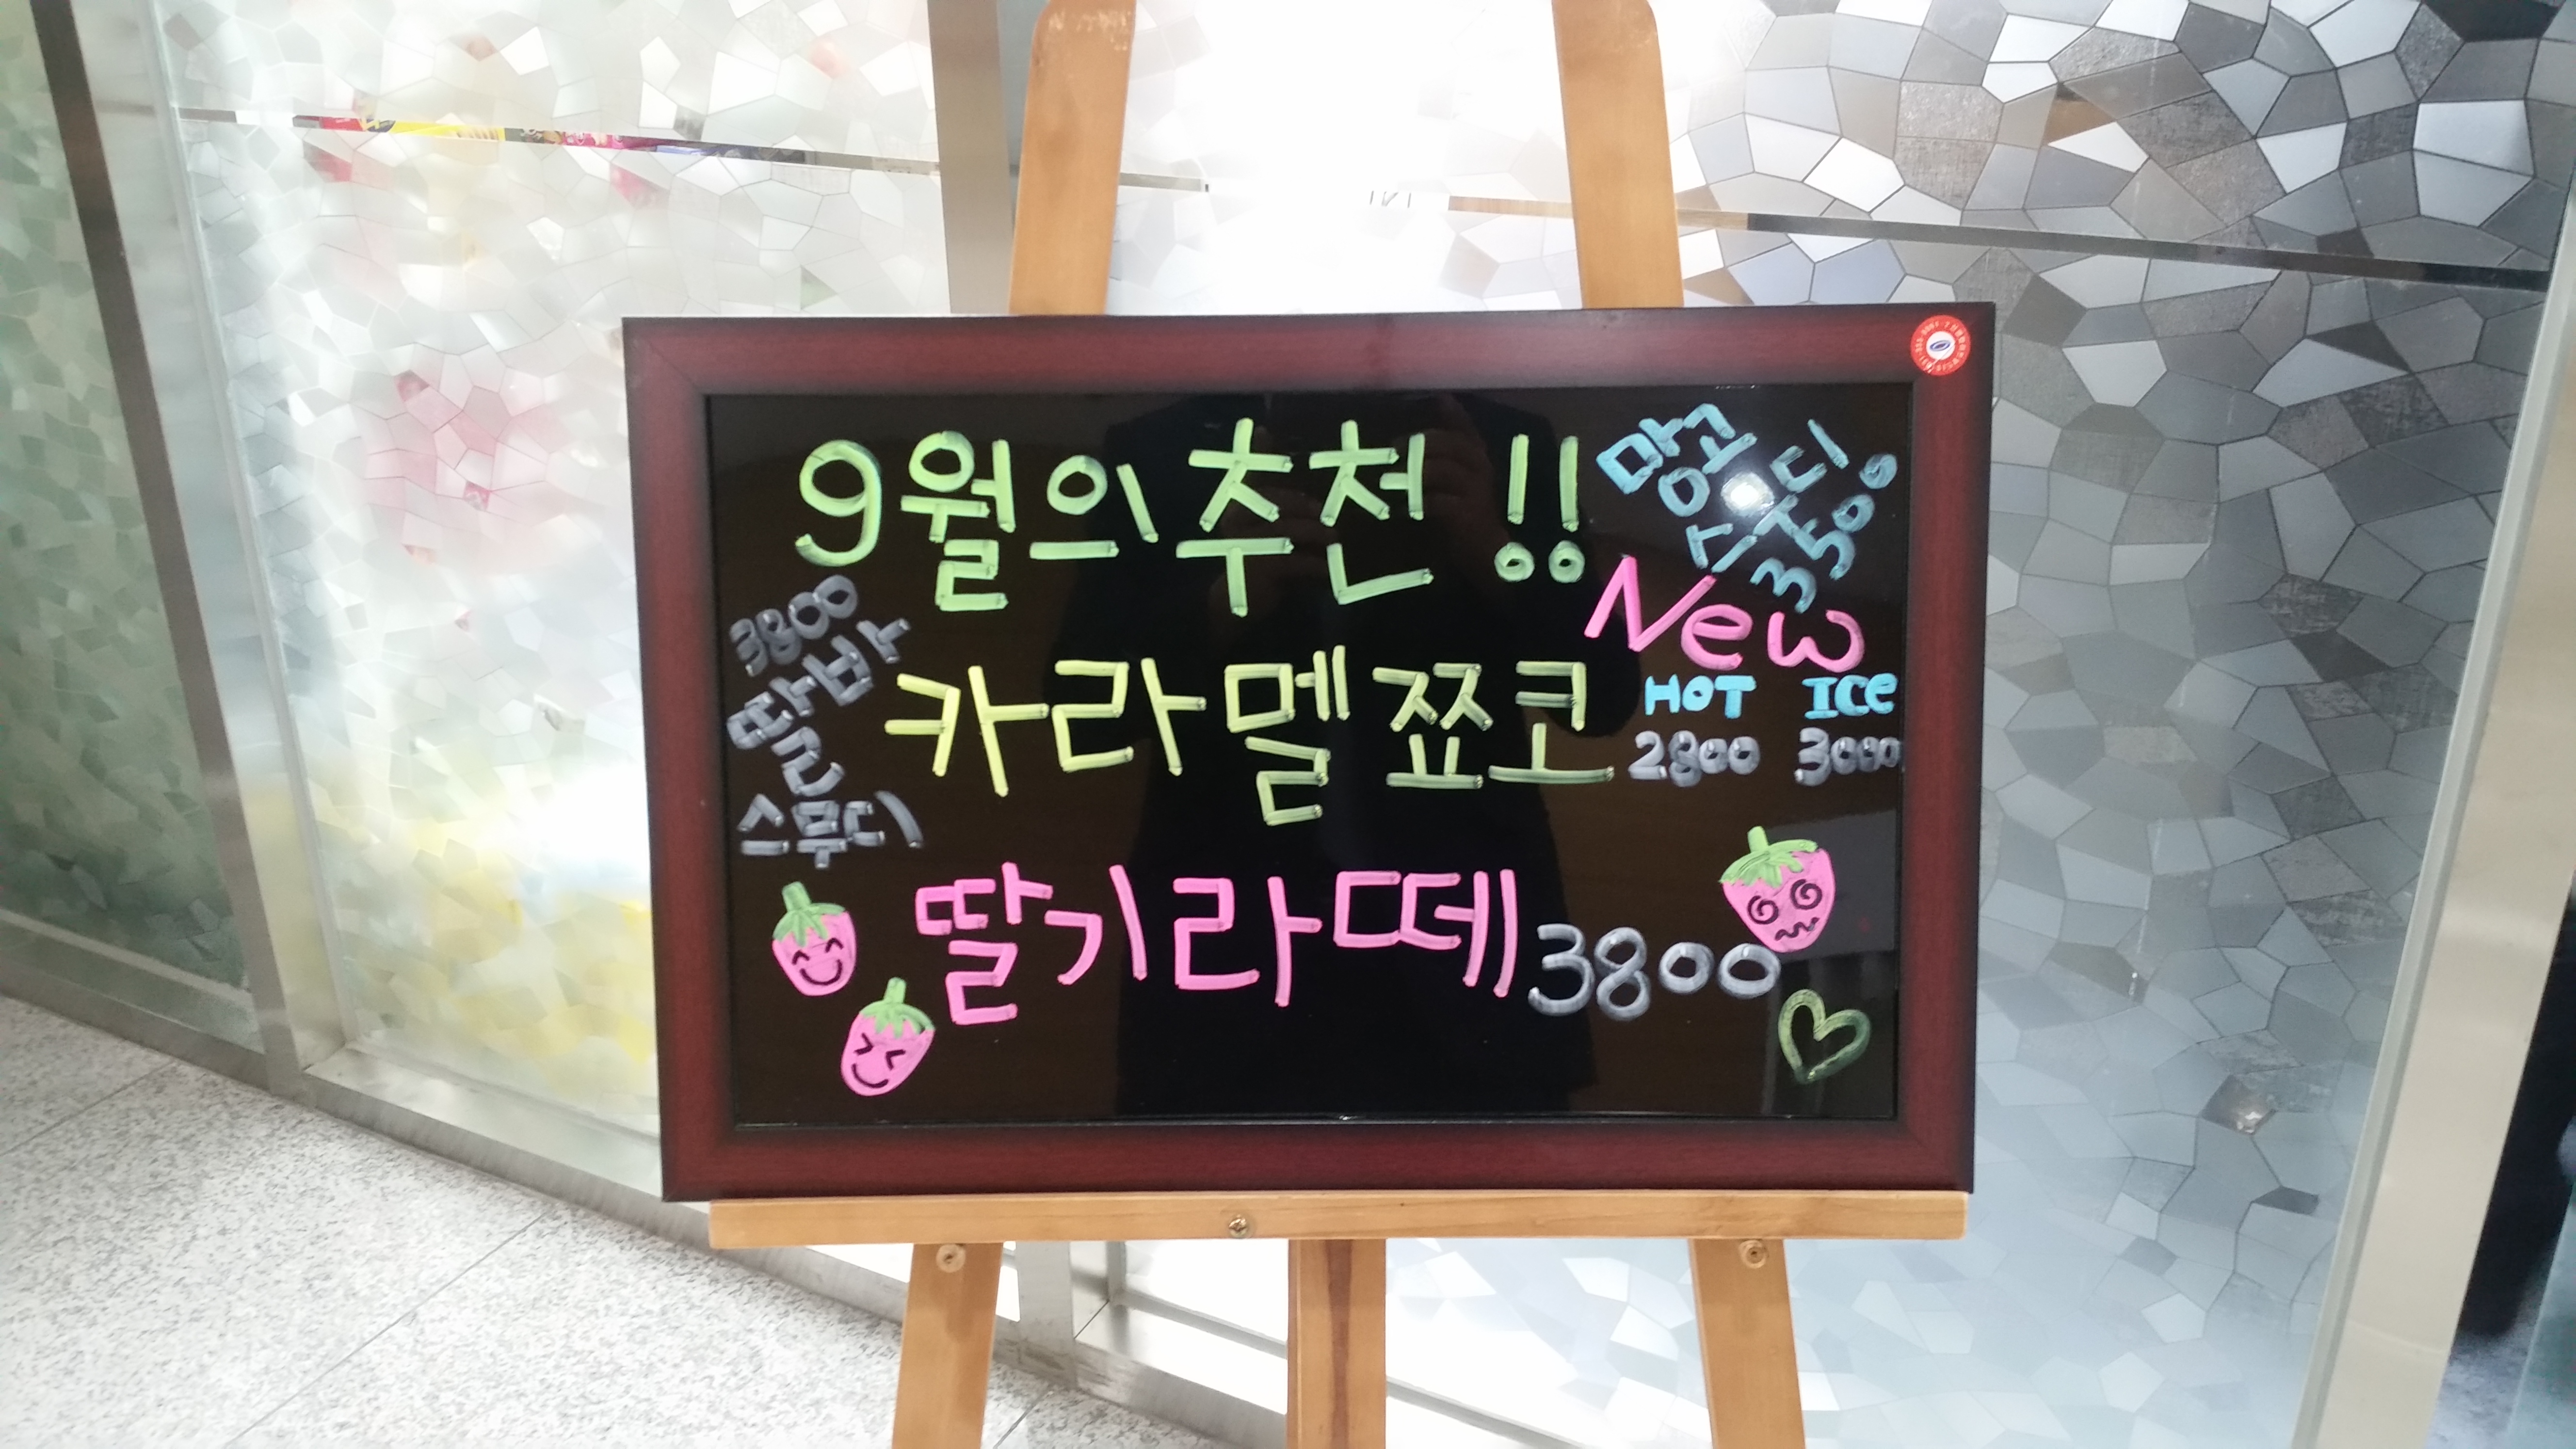 9월의 추천 !!
망고
스무디
3500
New
3800
딸바
스무디
카라멜쪼코
HOT ICe
2800 3000
딸기라떼 3800